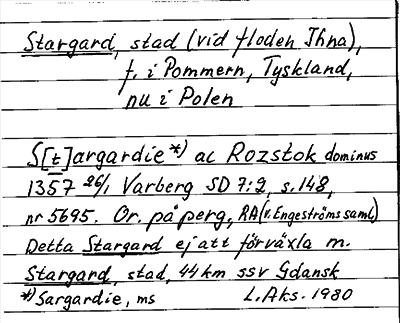 Stargard, stad (vid floden Ihna),
f. i Pommern, Tyskland,
nu i Polen
S[t]argardie*) ac Rozstok dominus
1357 26/1 Varberg SD 7:2, s. 148,
nr 5695. Or. på perg, RA (v. Engeströms saml)
Detta Stargard ej att förväxla m.
Stargard, stad, 44 km ssv Gdansk
*) Sargardie, ms L. Aks. 1980